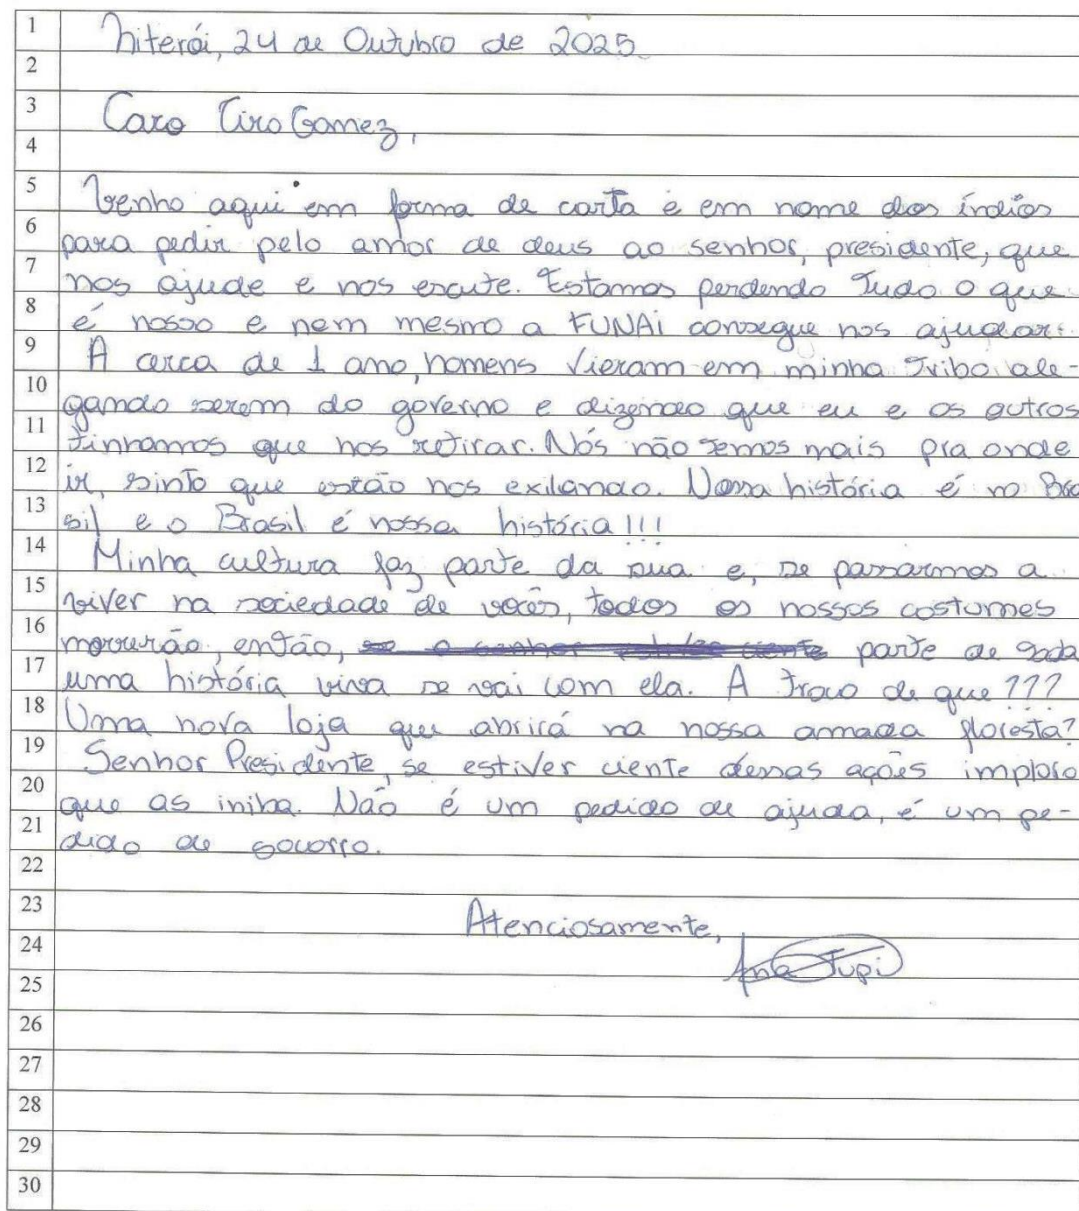 1 Niterói, 24 de Outubro de 2025
2
3 Caro Ciro Gomez,
4
5 Venho aqui em forma de carta e em nome dos índios
6 para pedir pelo amor de deus ao senhor, presidente, que
7 nos ajude e nos escute. Estamos perdendo Tudo o que
8 é nosso e nem mesmo a FUNAi consegue nos ajudar.
9 A cerca de 1 ano, homens vieram em minha Tribo ale-
10 gando serem do governo e dizendo que eu e os outros
11 tinhamos que nos retirar. Nós não temos mais pra onde
12 ir, sinto que estão nos exilando. Nossa história é no Bra
13 sil e o Brasil é nossa história!!!
14 Minha cultura faz parte da sua e, se passarmos a
15 viver na sociedade de vocês, todos os nossos costumes
16 morrerão, então, parte de toda
17 uma história viva se vai com ela. A troco de que???
18 Uma nova loja que abrirá na nossa amada floresta?
19 Senhor Presidente, se estiver ciente dessas ações imploro
20 que as iniba. Não é um pedido de ajuda, é um pe-
21 dido de socorro.
22
23 Atenciosamente,
24 Ana Tupi
25
26
27
28
29
30